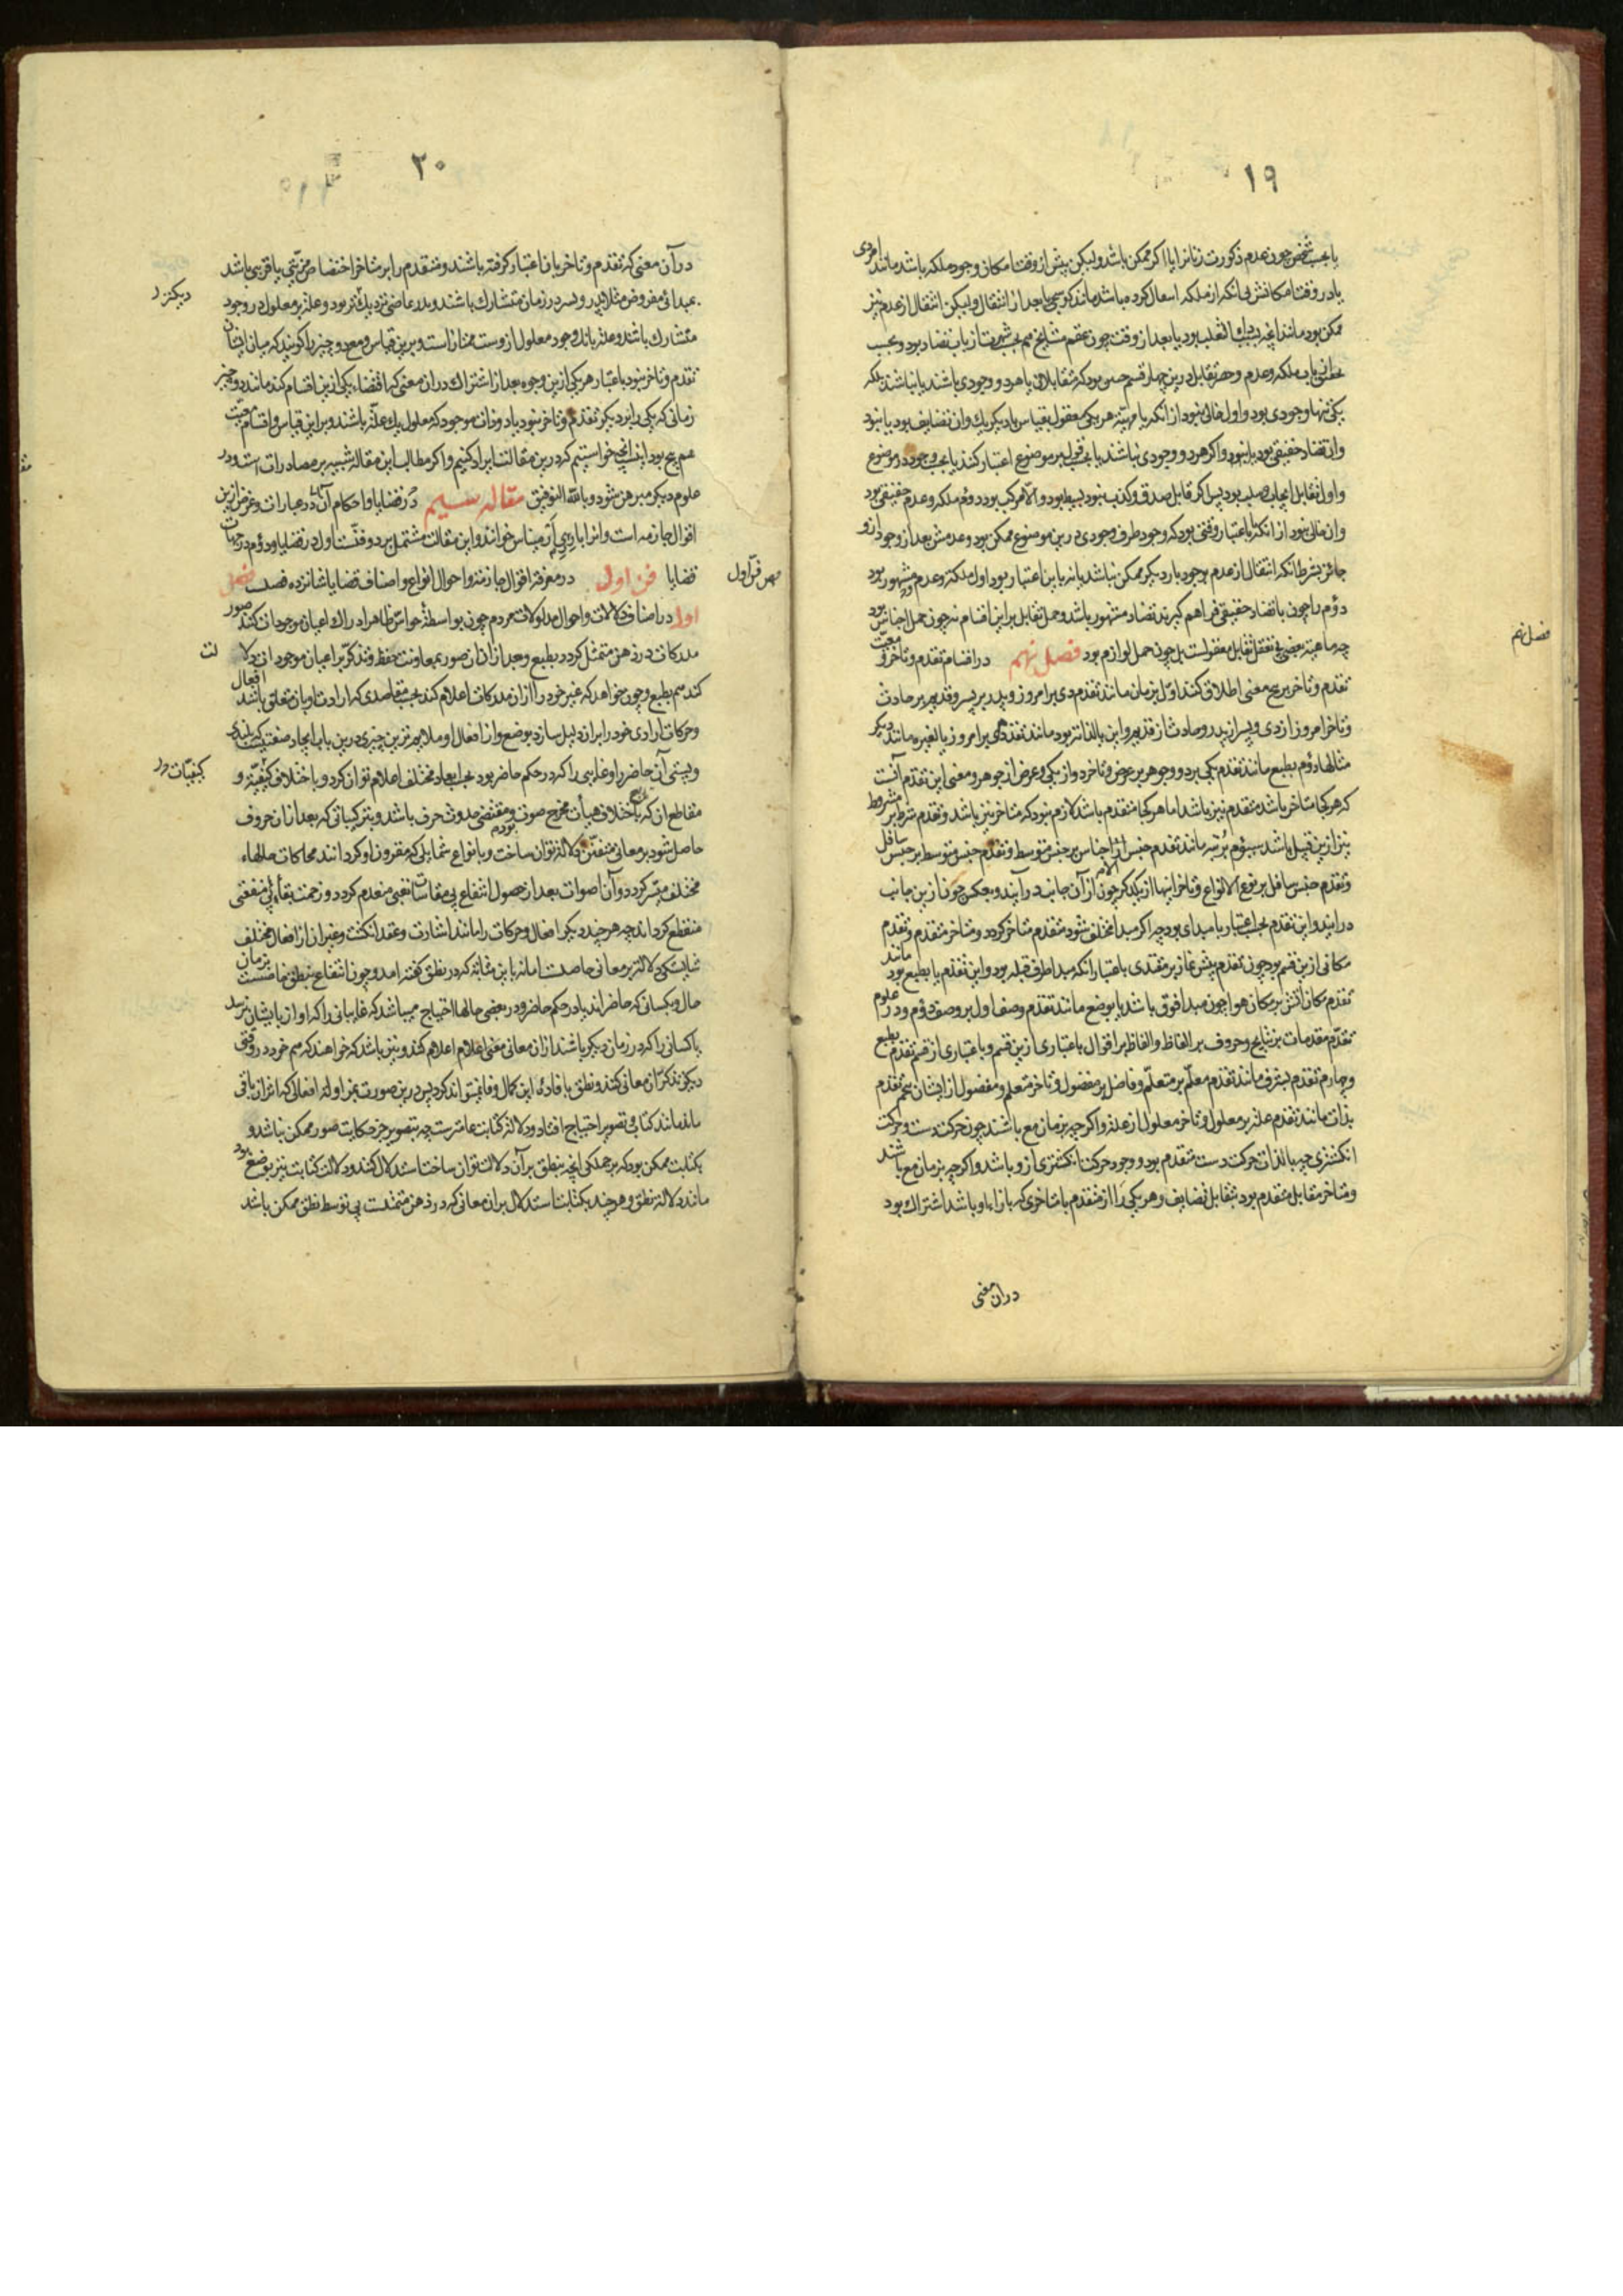 ۱۹
یا بحسب شخص چون عدم ذکورت زنانرا یا اگر ممکن باشد ولیکن پیش از وقت امکان وجود ملکه باشد مانند امردی
یا در وقت امکانش بی انکه از ملکه انتقال کرده باشد مانند کوسجی یا بعد از انتقال ولیکن انتقال از عدم نیز
ممکن بود مانند انچه بسبب داء الثعلب بود یا بعد از وقت چون عقم مشایخ هم بحسب شهرت از باب تضاد بود و بحسب
تحقیق از باب ملکه و عدم و حصر تقابل درین چهار قسم چنین بود که متقابلان یا هر دو وجودی باشند یا نباشند بلکه
یکی تنها وجودی بود و اول خالی نبود از انکه یا مهیّة هر یکی معقول بقیاس با دیگر یک وان تضایف بود یا نبود
وان تضاد حقیقی بود یا نبود و اگر هر دو وجودی نباشند یا بحسب قول بر موضوع اعتبار کنند یا بحسب وجود در موضوع
و اول تقابل ایجاب و سلب بود پس اگر قابل صدق و کذب نبود بسیط بود و الا مرکب بود و دوم ملکه و عدم حقیقی بود
وان خالی نبود از انکه باعتبار وقتی بود که وجود طرف وجودی درین موضوع ممکن بود و عدمش بعد از وجود ازو
جائز بشرط انکه انتقال از عدم بوجود بار دیگر ممکن نباشد یا نه باین اعتبار بود اول ملکه و عدم مشهور بود
و دوم را چون با تضاد حقیقی فراهم گیرند تضاد مشهور باشد و حمل تقابل بر این اقسام نه چون حمل اجناس بود
چه ماهیة بعضی بی تعقل تقابل معقولست بل چون حمل لوازم بود فصل نهم در اقسام تقدم و تاخر و معیّت
تقدم و تاخر بر پنج معنی اطلاق کنند اوّل بزمان مانند تقدم دی بر امروز و پدر بر پسر و قدیم بر حادث
و تاخر امروز از دی و پسر از پدر و حادث از قدیم و این یا بالذات بود مانند تقدم دی بر امروز یا بالغیر مانند دیگر
مثالها دوم بطبع مانند تقدم یکی بر دو و جوهر بر عرض و تاخر دو از یکی و عرض از جوهر و معنی این تقدم آنست
که هر کجا متاخر باشد متقدم نیز باشد اما هر کجا متقدم باشد لازم نبود که متاخر نیز باشد و تقدم شرط بر مشروط
نیز ازین قبیل باشد سیوم برتبه مانند تقدم جنس الاجناس بر جنس متوسط و تقدم جنس متوسط بر جنس سافل
و تقدم جنس سافل بر نوع الانواع و تاخر اینها از یکدگر چون از آن جانب درآیند و بعکس چون ازین جانب
درایند و این تقدم بحسب اعتبار با مبدای بود چه اگر مبدا مختلف شود متقدم متاخر گردد و متاخر متقدم و تقدم
مکانی ازین قسم بود چون تقدم پیش نماز بر مقتدی باعتبار انکه مبدا طرف قبله بود و این تقدم یا بطبع بود مانند
تقدم مکان آتش بر مکان هوا چون مبدا فوق باشد یا بوضع مانند تقدم وصف اول بر وصف دوم و در علوم
تقدم مقدمات بر نتایج و حروف بر الفاظ و الفاظ بر اقوال باعتباری ازین قسم و باعتباری از قسم تقدم بطبع
و چهارم تقدم بشرف مانند تقدم معلّم بر متعلم و فاضل بر مفضول و تاخر متعلم و مفضول از ایشان پنجم تقدم
بذات مانند تقدم علة بر معلول و تاخر معلول از علة و اگر چه بزمان مع باشند چون حرکت دست و حرکت
انگشتری چه بالذات حرکت دست متقدم بود و وجود حرکت انگشتری ازو باشد و اگر چه بزمان مع باشند
و متاخر مقابل متقدم بود بتقابل تضایف و هر یکی را از متقدم با متاخری که بازاء او باشد اشتراک بود
دران معنی
فصل نهم
۲۰
در آن معنی که تقدم و تاخر بان اعتبار گرفته باشند و متقدم را بر متاخر اختصاص مزیّتی یا قربی باشد
بمبدائی مفروض مثلا پدر و پسر در زمان متشارک باشند و پدر بماضی نزدیکتر بود و علة بر معلول در وجود
متشارک باشند و علة بانک وجود معلول ازوست ممتاز است و برین قیاس و مع دو چیز را گویند که میان ایشان
تقدم و تاخر نبود باعتبار هر یکی ازین وجوه بعد از اشتراک دران معنی که اقتضاء یکی ازین اقسام کند مانند دو چیز
زمانی که یکی را بر دیگر تقدم و تاخر نبود یا دو ذات موجود که معلول یک علّة باشند و براین قیاس و اقسام معیّت
هم پنج بود اینست انچه خواستیم کرد درین مقالت ایراد کنیم و اکثر مطالب این مقاله شبیه بر مصادرات است و در
علوم دیگر مبرهن شود و بالله التوفیق مقاله سیم در قضایا و احکام آن در عبارات و غرض ازین
اقوال جازمه است و انرا باری ارمیناس خوانند و این مقالت مشتمل بر دو فنّ است اول در قضایا و دوم در جهات
قضایا فن اول در معرفة اقوال جازمه و احوال انواع و اصناف قضایا شانزده فصلست فصل
اول در اصناف دلالات و احوال مدلولات مردم چون بواسطهٔ حواسّ ظاهر ادراک اعیان موجودات کند صور
مدرکات در ذهن متمثل گردد بطبع و بعد از ان ان صور بمعاونت حفظ و تذکر بر اعیان موجودات دلا
کند هم بطبع و چون خواهد که غیر خود را از ان مدرکات اعلام کند بحسب مقاصدی که ارادت او بان متعلق باشد افعال
و حرکات ارادی خود را بران دلیل سازد بوضع و از افعال او ملایم ترین چیزی درین باب ایجاد صفتیست
و پستی آن حاضر را و غایبی را که در حکم حاضر بود بحسب ابعاد مختلف اعلام توان کرد و باختلاف کیفیّة و
مقاطع ان که باختلاف هیأت مخرج صوت و مقتضی حدوث حرف باشد و بترکیباتی که بعد از ان حروف
حاصل شود بر معانی متفنّن دلالة توان ساخت و بانواع شمایلی که مقرون او گردانند محاکات حالهاء
مختلف میسّر گردد و آن اصوات بعد از حصول انتفاع بی مقاسات تعبی منعدم گردد و زحمت بقاء بی منفعتی
منقطع گرداند چه هر چند دیگر افعال و حرکات را مانند اشارت و عقد انگشت و غیر ان از افعال مختلف
شایستگی دلالة بر معانی حاصلست اما نه باین مثابه که در نطق گفته امد و چون انتفاع بنطق خاصست بزمان
حال و بکسانی که حاضراند یا در حکم حاضر و در بعضی حالها احتیاج میباشد که غایبانی را که اواز بایشان نرسد
یا کسانی را که در زمان دیگر باشند از ان معانی اعلام کند و نیز باشد که خواهند که هم خود در وقتی
دیگر تذکر ان معانی کنند و نطق بافادهٔ این کمال وفا نمیتواند کرد پس درین صورت بمزاولة افعالی که اثر ان باقی
ماند مانند کتابی و تصویر احتیاج افتاد و دلالة کتابت عامترست چه بتصویر جز حکایت صور ممکن نباشد و
بکتابت ممکن بود که بر جملگی انچه بنطق بر آن دلالت توان ساخت استدلال کنند و دلالت کتابت نیز بوضع بود
مانند دلالة نطق و هر چند بکتابت استدلال بران معانی که در ذهن متمثلست بی توسط نطق ممکن باشد
دیگر
فن اول
لت
کیفیّات